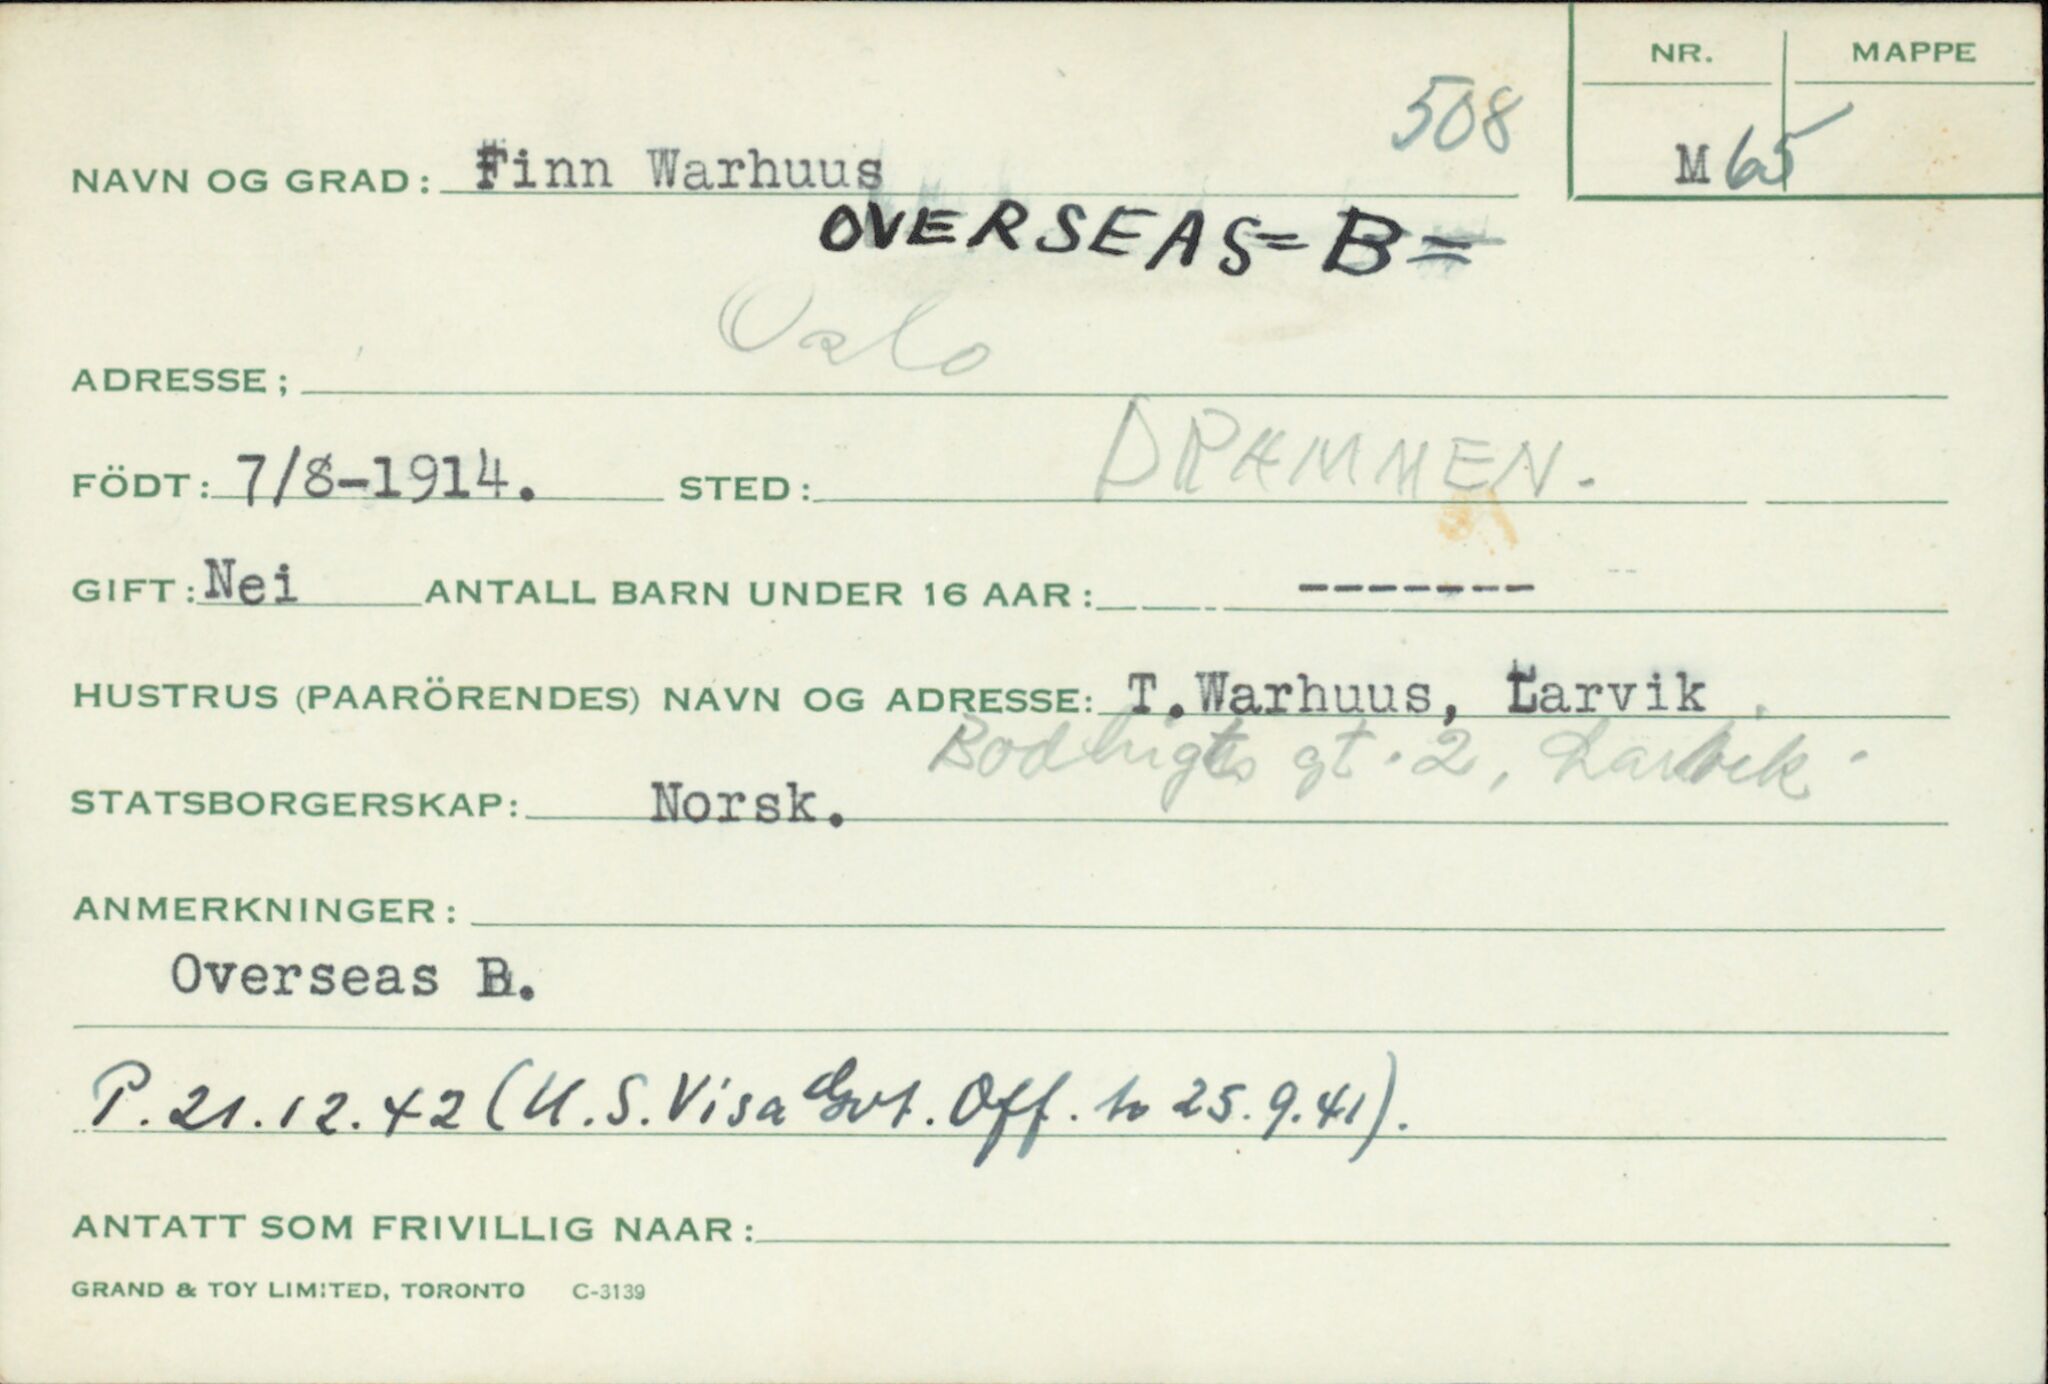 NR. MAPPE
508
M 65
NAVN OG GRAD: Finn Warhuus
OVERSEAS=B=
Oslo
ADRESSE;
FÖDT: 7/8-1914. STED: DRAMMEN.
GIFT: Nei ANTALL BARN UNDER 16 AAR: -------
HUSTRUS (PAARÖRENDES) NAVN OG ADRESSE: T.Warhuus, Larvik
gt. 2, Larvik.
STATSBORGERSKAP: Norsk.
ANMERKNINGER:
Overseas B.
P. 21.12.42 (U.S. Visa Gvt. Off. to 25.9.41).
ANTATT SOM FRIVILLIG NAAR:
GRAND & TOY LIMITED, TORONTO C-3139